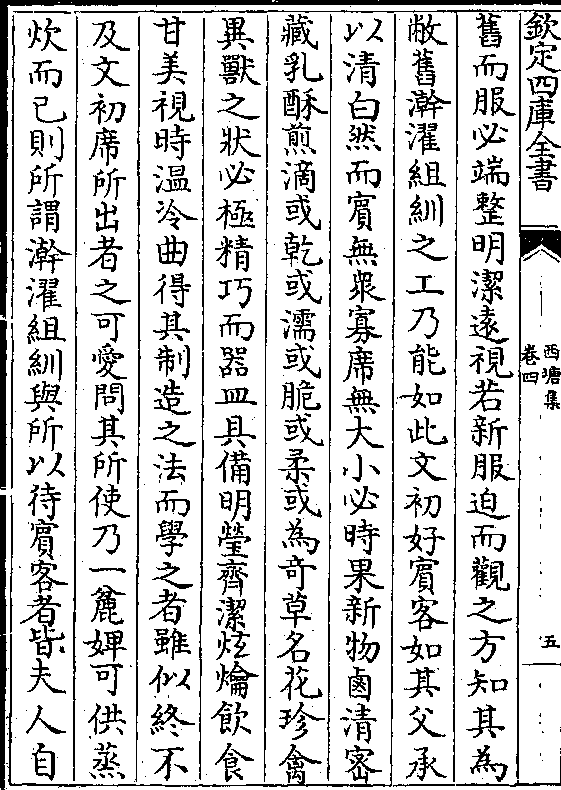 欽定四庫全書
西塘集
卷四
五
舊而服必端整明潔遠視若新服迫而觀之方知其為
敝舊澣濯組紃之工乃能如此文初好賓客如其父承
以清白然而賓無衆寡席無大小必時果新物鹵清宻
藏乳酥煎滴或乾或濡或脆或柔或為竒草名花珍禽
異獸之狀必極精巧而器皿具備明瑩齊潔炫爚飲食
甘美視時温冷曲得其制造之法而學之者雖似終不
及文初席所出者之可愛問其所使乃一麄婢可供蒸
炊而已則所謂澣濯組紃與所以待賓客者皆夫人自